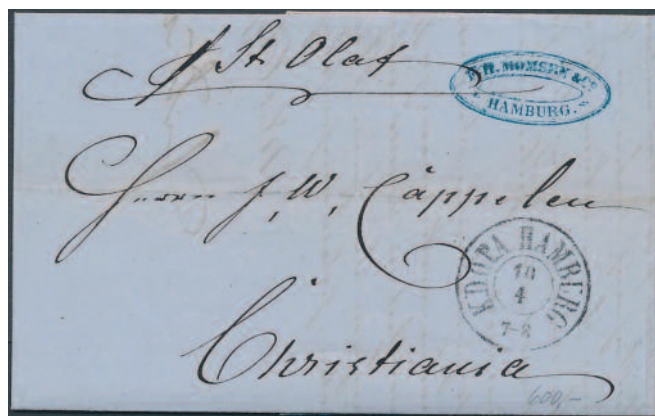 St Olaf
H. MOMSEN & Co
HAMBURG.
Herrn J. W. Cappelen
K.D.O.P.A. HAMBURG
10
4
7-8
Christiania
600,-